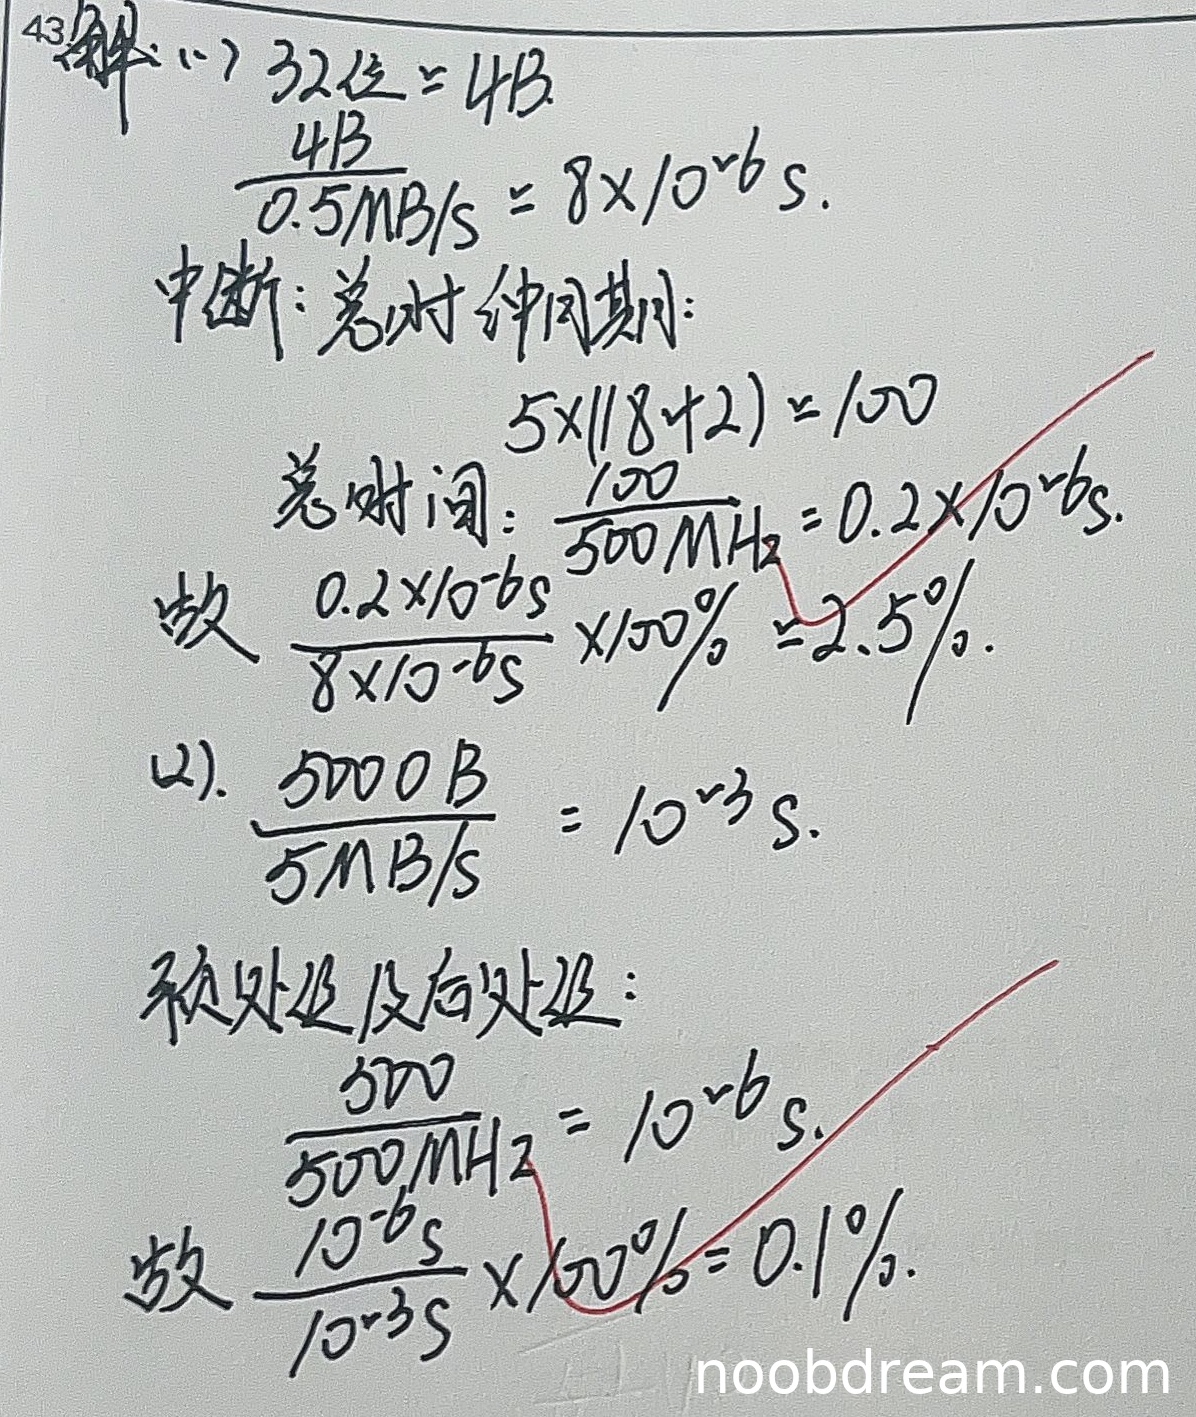 43
解:(1) 32位=4B.
4B
0.5MB/s = 8×10^-6 s.
中断:总时钟周期:
5×(18+2)=100
总时间: 100/500MHz = 0.2×10^-6s.
故 0.2×10^-6s / 8×10^-6s ×100% =2.5%.
(2). 5000B / 5MB/s = 10^-3 s.
预处理及后处理:
500/500MHz = 10^-6 s.
故 10^-6s / 10^-3s ×100%=0.1%.
noobdream.com